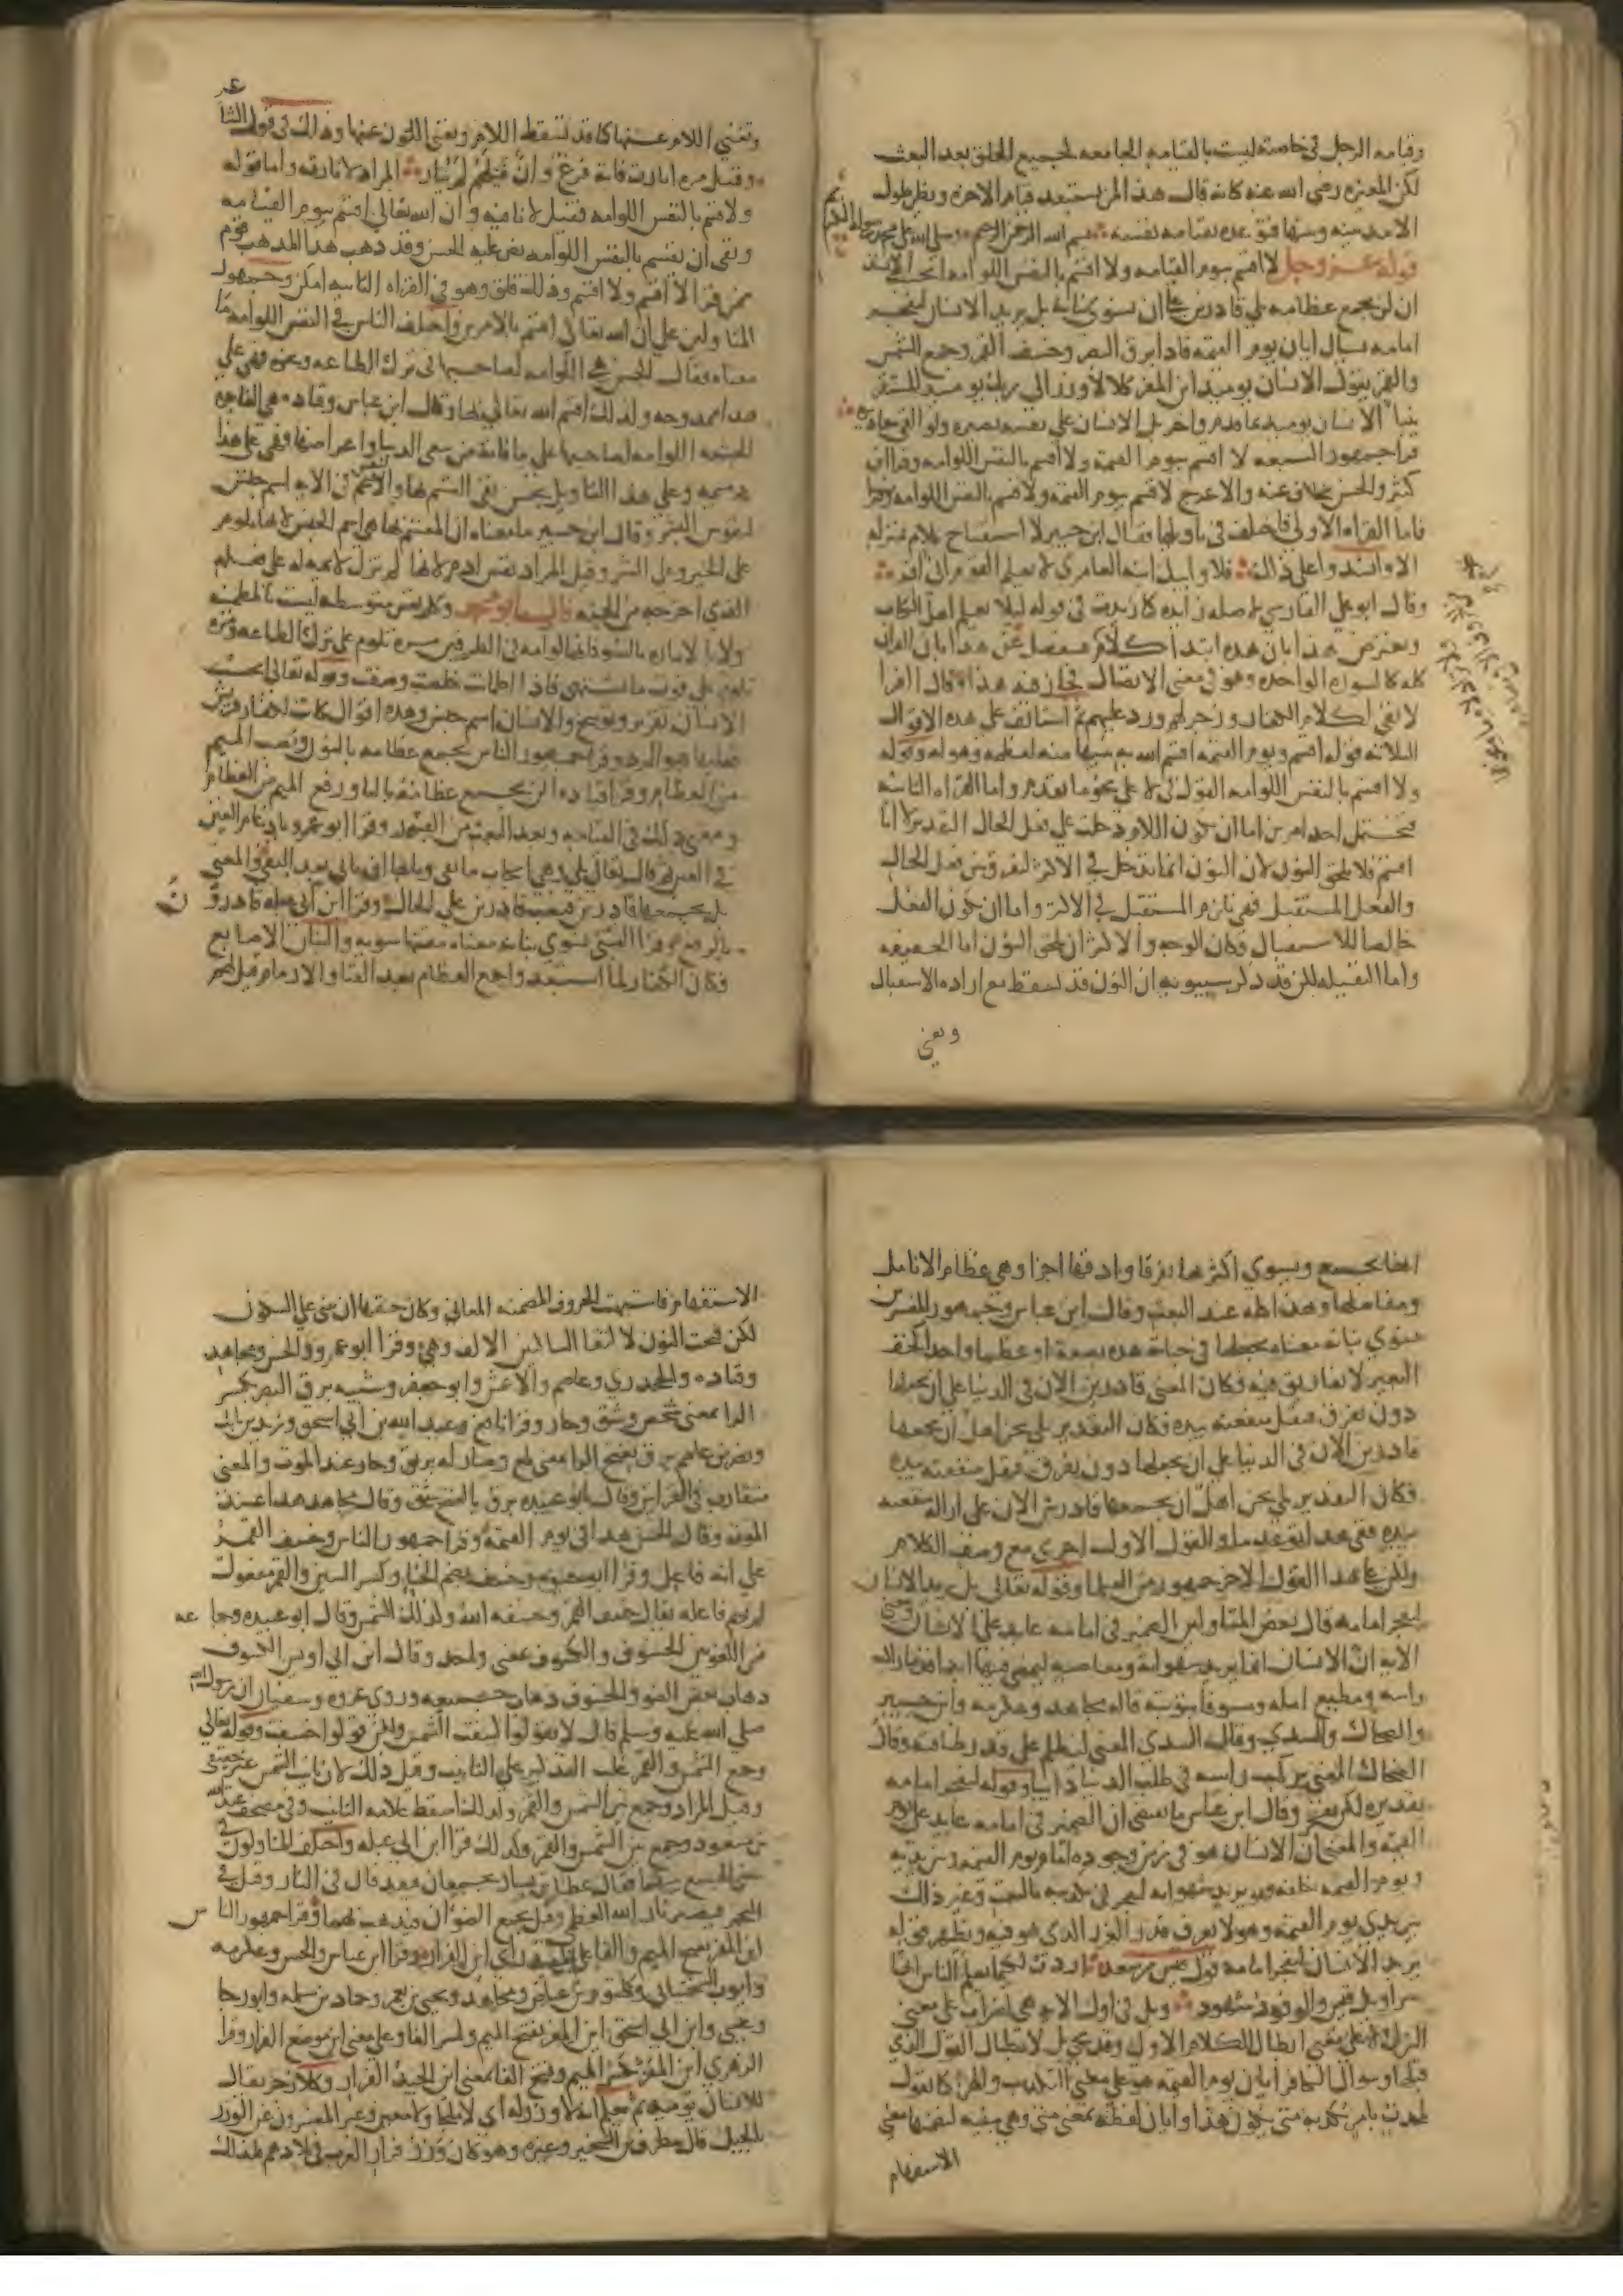 وقيامه الرجل في خاصته ليست بالقيامه الجامعه لجميع الخلق بعد البعث
لكن المغيره رضي الله عنه كانه قال هذا لمن يستبعد قيام الاخره ويظن طول
الامد بينه وبينها بسم الله الرحمن الرحيم وصلى الله على محمد
قوله عز وجل لا اقسم بيوم القيامه ولا اقسم بالنفس اللوامه ايحسب الانسان
ان لن نجمع عظامه بلى قادرين على ان نسوي بنانه بل يريد الانسان ليفجر
امامه يسال ايان يوم القيمه فاذا برق البصر وخسف القمر وجمع الشمس
والقمر يقول الانسان يومئذ اين المفر كلا لا وزر الى ربك يومئذ المستقر
ينبا الانسان يومئذ بما قدم واخر بل الانسان على نفسه بصيره ولو القى معاذيره
قرا جمهور السبعه لا اقسم بيوم القيمه ولا اقسم بالنفس اللوامه وقرا ابن
كثير والحسن بخلاف عنه والاعرج لاقسم بيوم القيمه ولاقسم بالنفس اللوامه
فاما القراه الاولى فاختلف في تاويلها فقال ابن جبير لا استفتاح كلام بمنزله
الا وانشدوا على ذلك فلا وابيك ابنه العامري لا يعلم القوم اني افر
وقال ابو علي الفارسي لا صله زايده كما زيدت في قوله ليلا يعلم اهل الكتاب
ويعترض هذا بان هذه ابتدا كلام
كله كالسوره الواحده وهو في معنى الاتصال فجاز فيه هذا وقال الفرا
لا نفي لكلام الكفار وزجر لهم ورد عليهم ثم استانف على هذه الاقوال
الثلاثه قوله اقسم ويوم القيمه اقسم الله به تنبيها منه لعظمه وهوله وقوله
ولا اقسم بالنفس اللوامه القول في لا على نحو ما تقدم واما القراه الثانيه
فتحتمل احد امرين اما ان تكون اللام دخلت على فعل الحال التقدير لانا
اقسم فلا تلحق النون لان النون انما تدخل في الاكثر لتفرق بين فعل الحال
والفعل المستقبل فهي تلزم المستقبل في الاكثر واما ان يكون الفعل
خالصا للاستقبال فكان الوجه والاكثر ان تلحق النون اما الخفيفه
واما الثقيله لكن قد ذكر سيبويه ان النون قد تسقط مع اراده الاستقبال
وتغني
وتغني اللام عنها كما قد تسقط اللام وتغني النون عنها وذلك في قول الشاعر
وقتيل مره اثارت فانه فرغ وان قتيلهم لم يثار المراد لاثارنه واما قوله
ولا اقسم بالنفس اللوامه فقيل لا نافيه وان الله تعالى اقسم بيوم القيامه
ونفى ان يقسم بالنفس اللوامه نص عليه الحسن وقد ذهب هذا المذهب قوم
ممن قرا لا اقسم ولا اقسم وذلك قلق وهو في القراه الثانيه امكن وجمهور
المتاولين على ان الله تعالى اقسم بالامرين واختلف الناس في النفس اللوامه ما
معناه فقال الحسن هي اللوامه لصاحبها في ترك الطاعه ونحوه فهي على
هذا ممدوحه ولذلك اقسم الله تعالى بها وقال ابن عباس وقتاده هي الفاجره
الجشعه اللوامه لصاحبها على ما فاته من سعي الدنيا واعراضها فهي على هذا
ذميمه وعلى هذا التاويل يحسن نفي القسم بها والنفس في الايه اسم جنس
لنفوس البشر وقال ابن جبير ما معناه ان القسم بها هي اسم الجنس لانها تلوم
على الخير وعلى الشر وقيل المراد نفس ادم لانها لم تزل لايمه له على فعله
الذي اخرجه من الجنه قال ابو محمد وكل نفس متوسطه ليست بالمطمئنه
ولا بالاماره بالسوء فانها لوامه في الطرفين مره تلوم على ترك الطاعه ومره
تلوم على فوت ما تشتهي فاذا اطمانت خلصت وصفت وقوله تعالى ايحسب
الانسان تقرير وتوبيخ والانسان اسم جنس وهذه اقوال كانت لكفار قريش
فعليها هو الرد وقرا جمهور الناس نجمع عظامه بالنون ونصب الميم
من العظام وقرا قتاده ان لن يجمع عظامه بالتا ورفع الميم من العظام
ومعنى ذلك في القيامه وبعد البعث من القبور وقرا ابو عمرو بادغام العين
في العين ثم قال تعالى بلى وهي ايجاب ما نفي وبابها ان تاتي بعد النفي والمعنى
بل نجمعها قادرين فنصب قادرين على الحال وقرا ابن ابي عبله قادرون
بالرفع وقرا الستي نسوي بنانه معناه نتقنها سويه والبنان الاصابع
فكان الكفار لما استبعدوا جمع العظام بعد الفنا والارمام قيل لهم
انما تجمع ويسوي اكثرها تفرقا وادقها اجزا وهي عظام الانامل
ومفاصلها وهذا كله عند البعث وقال ابن عباس وجمهور المفسرين
نسوي بنانه معناه نجعلها في حياته هذه بضعه او عظما واحدا كخف
البعير لا تفاريق فيه وكان المعنى قادرين الان في الدنيا على ان نجعلها
دون تفرق فتقل منفعته بيده فكان التقدير بلى نحن اهل ان نجمعها
قادرين الان في الدنيا على ان نجعلها دون تفرق فتقل منفعته بيده
فكان التقدير بلى نحن اهل ان نجمعها قادرين الان على ازاله منفعه
بيده ففي هذا توعد ما والقول الاول اجرى مع وصف الكلام
ولكن على هذا القول الاخر جمهور من العلما وقوله تعالى بل يريد الانسان
ليفجر امامه قال بعض المتاولين الضمير في امامه عايد على الانسان ومعنى
الايه ان الانسان انما يريد شهواته ومعاصيه ليمضي فيها ابدا قدما راكبا
راسه ومطيع امله ومسوفا بتوبته قاله مجاهد وعكرمه وابن جبير
والضحاك والسدي وقال السدي المعنى ليظلم على قدر طاقته وقال
الضحاك المعنى يركب راسه في طلب الدنيا دايبا وقوله ليفجر امامه
تقديره لكن يفجر وقال ابن عباس ما يقتضي ان الضمير في امامه عايد على يوم
القيمه والمعنى ان الانسان هو في زمن وجوده امام يوم القيمه وبين يديه
ويوم القيمه خلفه فهو يريد شهواته ليفجر في تكذيبه بالبعث وغير ذلك
بين يدي يوم القيمه وهو لا يعرف قدر الضرر الذي هو فيه ونظير قوله
يريد الانسان ليفجر امامه قول قيس بن سعد اردت لكيما يعلم الناس انها
سراويل قيس والوفود شهود وبل في اول الايه هي اضراب على معنى
الترك لا على معنى ابطال الكلام الاول وقد تجي بل لابطال القول الذي
قبلها وسوال الكافر ايان يوم القيمه هو على معنى التكذيب والهزء كما تقول
لمحدث بامر تكذبه متى يكون هذا وايان لفظه بمعنى متى وهي مبنيه لتضمنها معنى
الاستفهام
الاستفهام فاشبهت الحروف المضمنه المعاني وكان حقها ان تبنى على السكون
لكن فتحت النون لالتقا الساكنين الالف وهي وقرا ابو عمرو والحسن ومجاهد
وقتاده والجحدري وعاصم والاعمش وابو جعفر وشيبه برق البصر بكسر
الرا بمعنى شخص وشق وحار وقرا نافع وعبد الله بن ابي اسحق وزيد بن ثابت
ونصر بن عاصم برق بفتح الرا بمعنى لمع وصار له بريق وحار عند الموت والمعنى
متقارب في القراتين وقال ابو عبيده برق بالفتح شق وقال مجاهد هذا عند
الموت وقال الحسن هذا في يوم القيمه وقرا جمهور الناس وخسف القمر
على انه فاعل وقرا ابو حيوه وخسف بضم الخا وكسر السين والقمر مفعول
لم يسم فاعله يقال خسف القمر وخسفه الله وكذلك الشمس وقال ابو عبيده وجماعه
من اللغويين الخسوف والكسوف بمعنى واحد وقال ابن ابي اويس الكسوف
ذهاب بعض الضو والخسوف ذهاب جميعه وروى عروه وسفيان ان رسول الله
صلى الله عليه وسلم قال لا تقولوا كسفت الشمس ولكن قولوا خسفت وقوله تعالى
وجمع الشمس والقمر غلب التذكير على التانيث وقيل ذلك لان تانيث الشمس غير حقيقي
وقيل المراد وجمع بين الشمس والقمر ولذلك اسقط علامه التانيث وفي مصحف عبد الله
بن مسعود وجمع بين الشمس والقمر وكذلك قرا ابن ابي عبله واختلف المتاولون في
معنى الجمع بينهما فقال عطا بن يسار يجمعان فيقذفان في النار وقيل في
البحر فيصير نار الله العظمى وقيل يجمع الضوان فيذهب بهما وقرا جمهور الناس
اين المفر بفتح الميم والفا على المصدر اي اين الفرار وقرا ابن عباس والحسن وعكرمه
وايوب السختياني وكلثوم بن عياض ومجاهد ويحيى بن يعمر وحماد بن سلمه وابو رجا
وعيسى وابن ابي اسحق اين المفر بفتح الميم وكسر الفا وعلى معنى اين موضع الفرار وقرا
الزهري اين المفر بكسر الميم وفتح الفا بمعنى اين الجيد الفرار وكلا زجر يقال
للانسان يوميذ ثم يعلم انه لا وزر له اي لا ملجا ولا معين وعبر المفسرون عن الوزر
بالجبل قال مطرف بن الشخير وغيره وهو كان وزر فرار العرب في بلادهم فلذلك